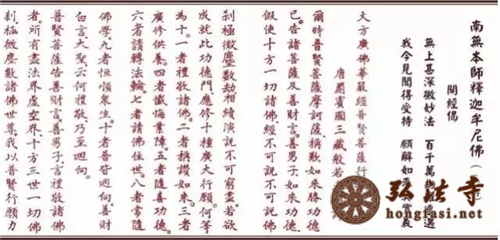 南無本師釋迦牟尼佛（
開經偈
無上甚深微妙法　百千萬劫　遭遇
我今見聞得受持　願解如　實義
大方廣佛華嚴經普賢菩薩行
唐罽賓國三藏般若
爾時普賢菩薩摩訶薩。稱歎如來勝功德
已。告諸菩薩及善財言。善男子。如來功德。
假使十方一切諸佛。經不可說不可說佛
剎極微塵數劫。相續演說。不可窮盡。若欲
成就此功德門。應修十種廣大行願。何等
為十。一者禮敬諸佛。二者稱讚如來。三者
廣修供養。四者懺悔業障。五者隨喜功德。
六者請轉法輪。七者請佛住世。八者常隨
佛學。九者恒順眾生。十者普皆迴向。善財
白言。大聖。云何禮敬。乃至迴向。
普賢菩薩告善財言。善男子。言禮敬諸佛
者。所有盡法界虛空界。十方三世一切佛
剎極微塵數諸佛世尊。我以普賢行願力
弘法寺
hongfasi.net